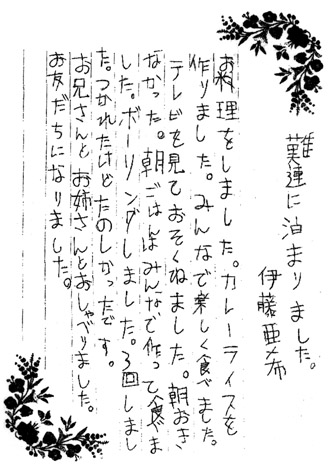 難蓮に泊まりました。
伊藤亜希
お料理をしました。カレーライスを
作りました。みんなで楽しく食べました。
テレビを見ておそくねました。朝おき
なかった。朝ごはんはみんなで作って食べま
した。ボーリングしました。3回しまし
た。つかれたけどたのしかったです。
お兄さんとお姉さんとおしゃべりました。
お友だちになりました。